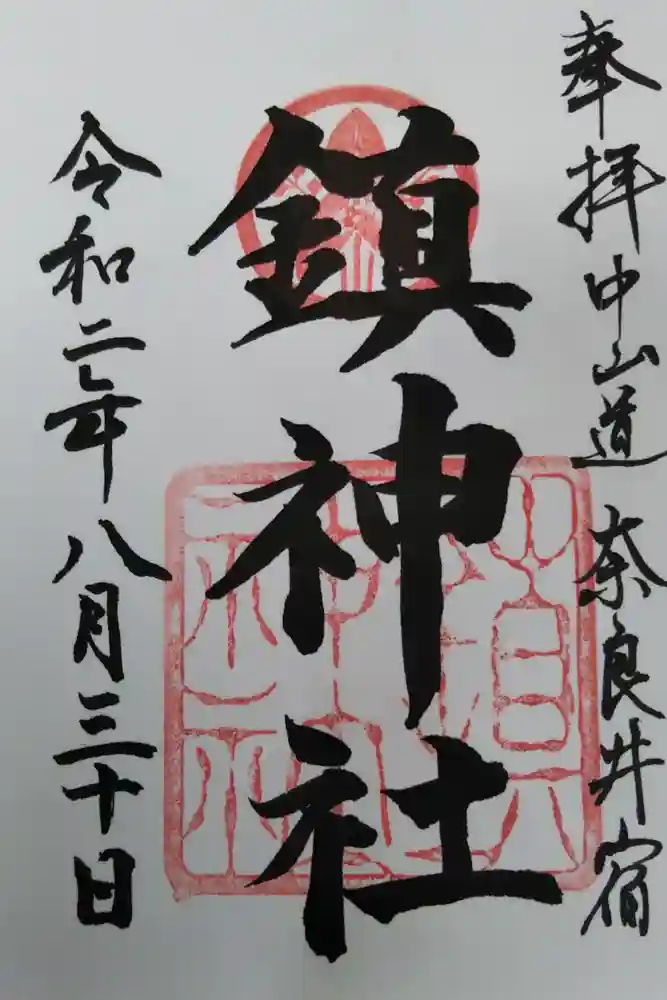 奉拝中山道奈良井宿
鎮神社
令和二年八月三十日